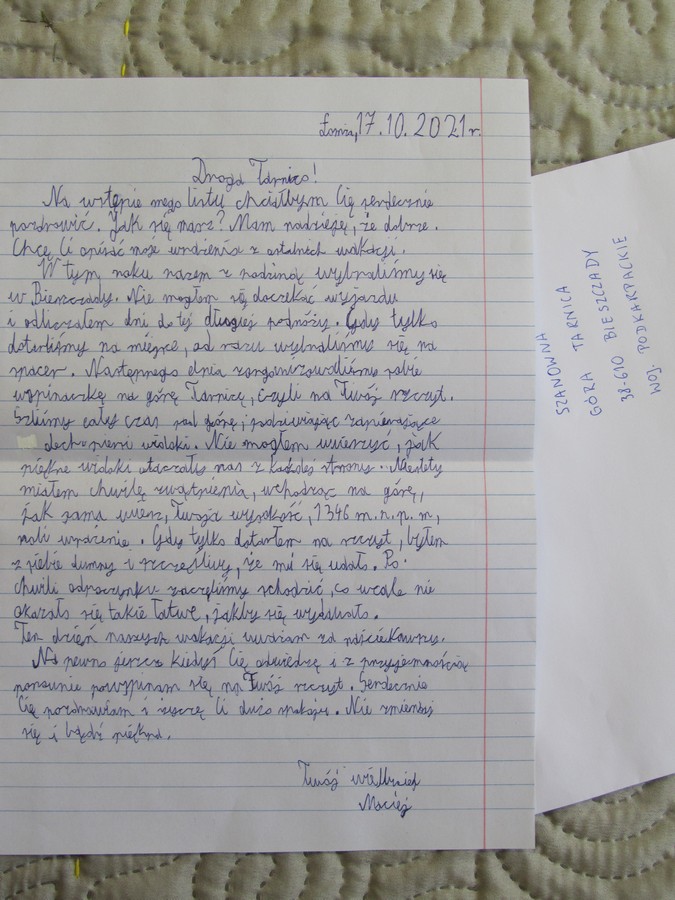 Łomża, 17.10.2021 r.
Droga Tarnico!
Na wstępie mego listu chciałbym Cię serdecznie
pozdrowić. Jak się masz? Mam nadzieję, że dobrze.
Chcę Ci opisać moje wrażenia z ostatnich wakacji.
W tym roku razem z rodziną wybraliśmy się
w Bieszczady. Nie mogłem się doczekać wyjazdu
i odliczałem dni do tej długiej podróży. Gdy tylko
dotarliśmy na miejsce, od razu wybraliśmy się na
spacer. Następnego dnia zorganizowaliśmy sobie
wspinaczkę na górę Tarnicę, czyli na Twój szczyt.
Szliśmy cały czas pod górę, podziwiając zapierające
dech w piersi widoki. Nie mogłem uwierzyć, jak
piękne widoki otaczały nas z każdej strony. Niestety
miałem chwilę zwątpienia, wchodząc na górę,
jak sama wiesz, Twoja wysokość, 1346 m.n.p.m,
robi wrażenie. Gdy tylko dotarłem na szczyt, byłem
z siebie dumny i szczęśliwy, że mi się udało. Po
chwili odpoczynku zaczęliśmy schodzić, co wcale nie
okazało się takie łatwe, jakby się wydawało.
Ten dzień naszych wakacji uważam za najciekawszy.
Na pewno jeszcze kiedyś Cię odwiedzę i z przyjemnością
ponownie powspinam się na Twój szczyt. Serdecznie
Cię pozdrawiam i życzę Ci dużo spokoju. Nie zmieniaj
się i bądź piękna.
Twój wielbiciel
Maciej
SZANOWNA
GÓRA TARNICA
38-610 BIESZCZADY
WOJ. PODKARPACKIE